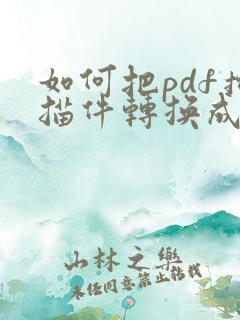 如何把pdf掃
描件轉換成
山林之樂
未經同意禁止轉載